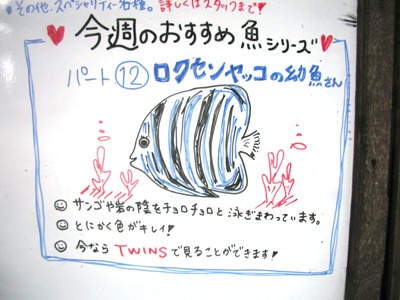 ●その他、スペシャリティー各種。詳しくはスタッフまで!
今週のおすすめ魚シリーズ
パート⑫ロクセンヤッコの幼魚さん
サンゴや岩の陰をチョロチョロと泳ぎまわっています。
とにかく色がキレイ!
今ならTWINSで見ることができます!